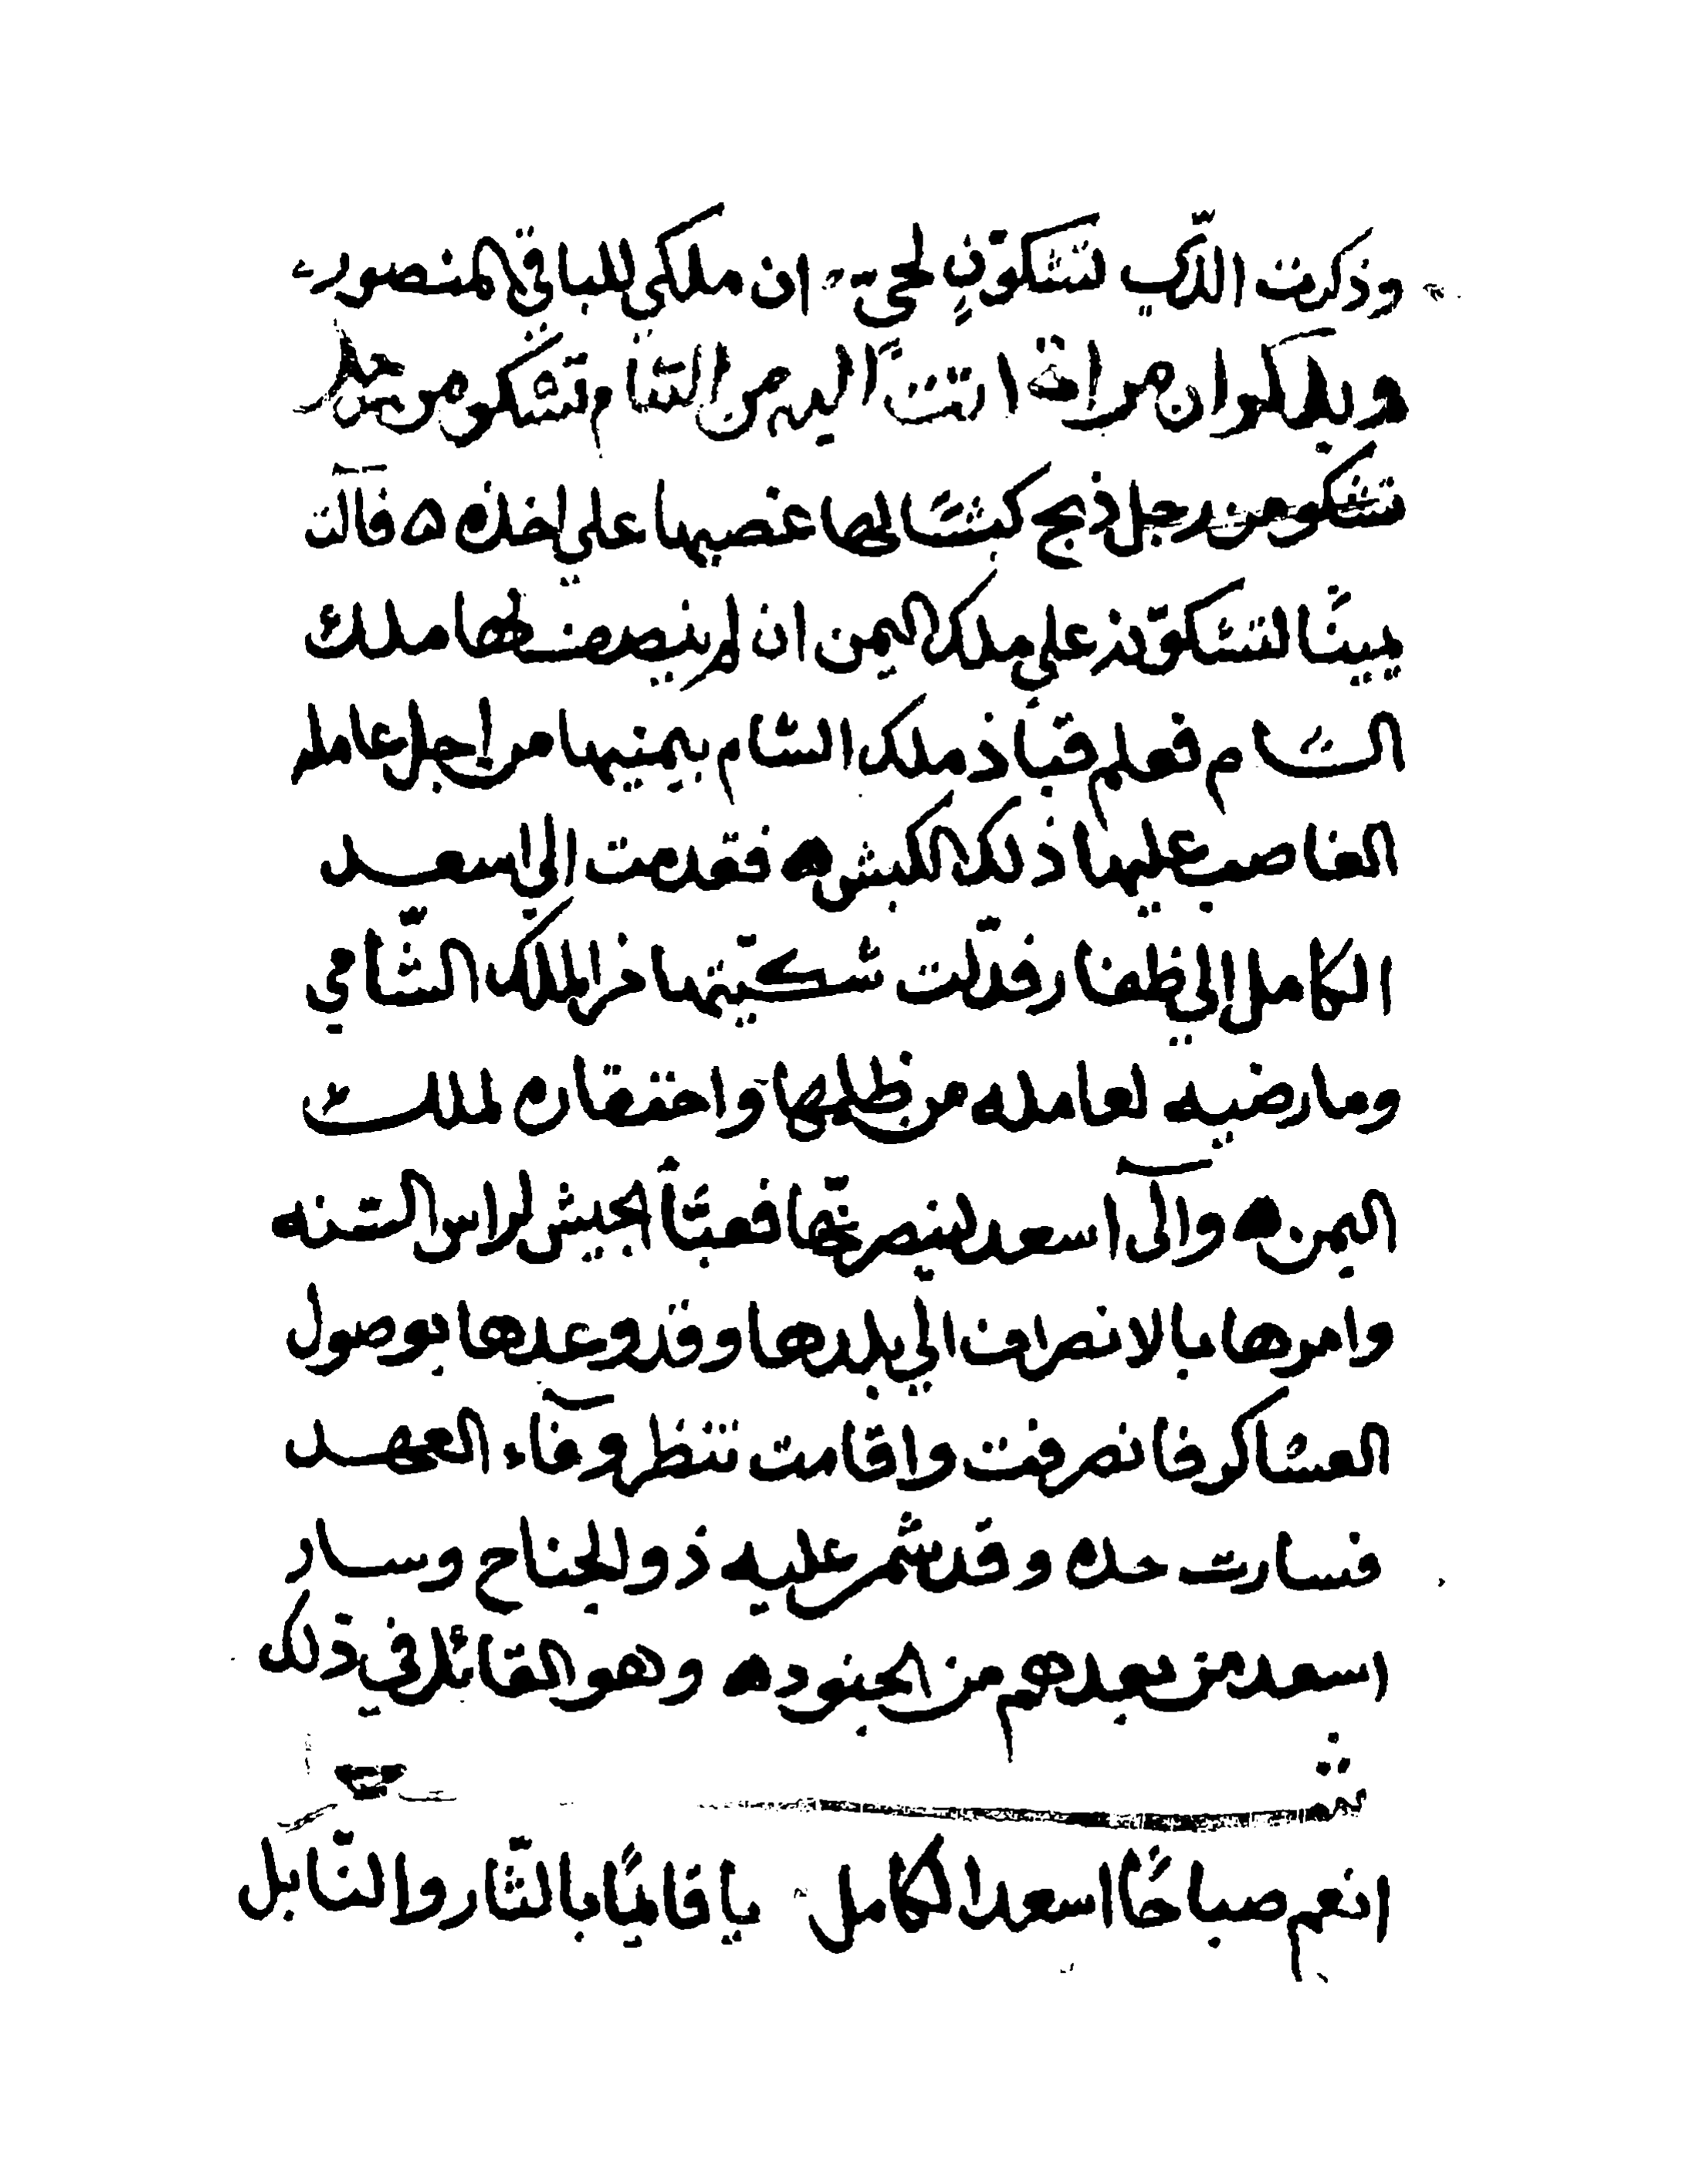 وذكرت الذي لتشكون لحي ان ملكي للباقي لمنصور
ويذكر ان مراة اتت اليه من الشام تشكو من رجل
تشكو من رجل ذبح كبشًا لها غصبها على اخذه ه فالت
يمينًا لتشكونّ على ملك اليمن ان لم ينصف لها ملك
الشام فعلم قباذ ملك الشام بيمينها من اجل عامله
الغاصب عليها ذلك الكبش ه فقدمت الى اسعد
الكامل الي ظفار فدلت شكيتها من الملك الشامي
وما رضيه لعامله من ظلمها واحتقاره لملك
اليمن ه وآلى اسعد لينصرنّها فعبّأ الجيش لراس السنه
وامرها بالانصراف الي بلدها وقد وعدها بوصول
العساكر فانصرفت واقامت تنتظر وفآء العهد
فسارت حده وقد شمر عليه ذو الجناح وسار
اسعد من بعدهم من الجنود ه وهو القائل في ذلك
شعر
انعم صباحًا اسعد الكامل يا قاميًا بالثار والنّابل